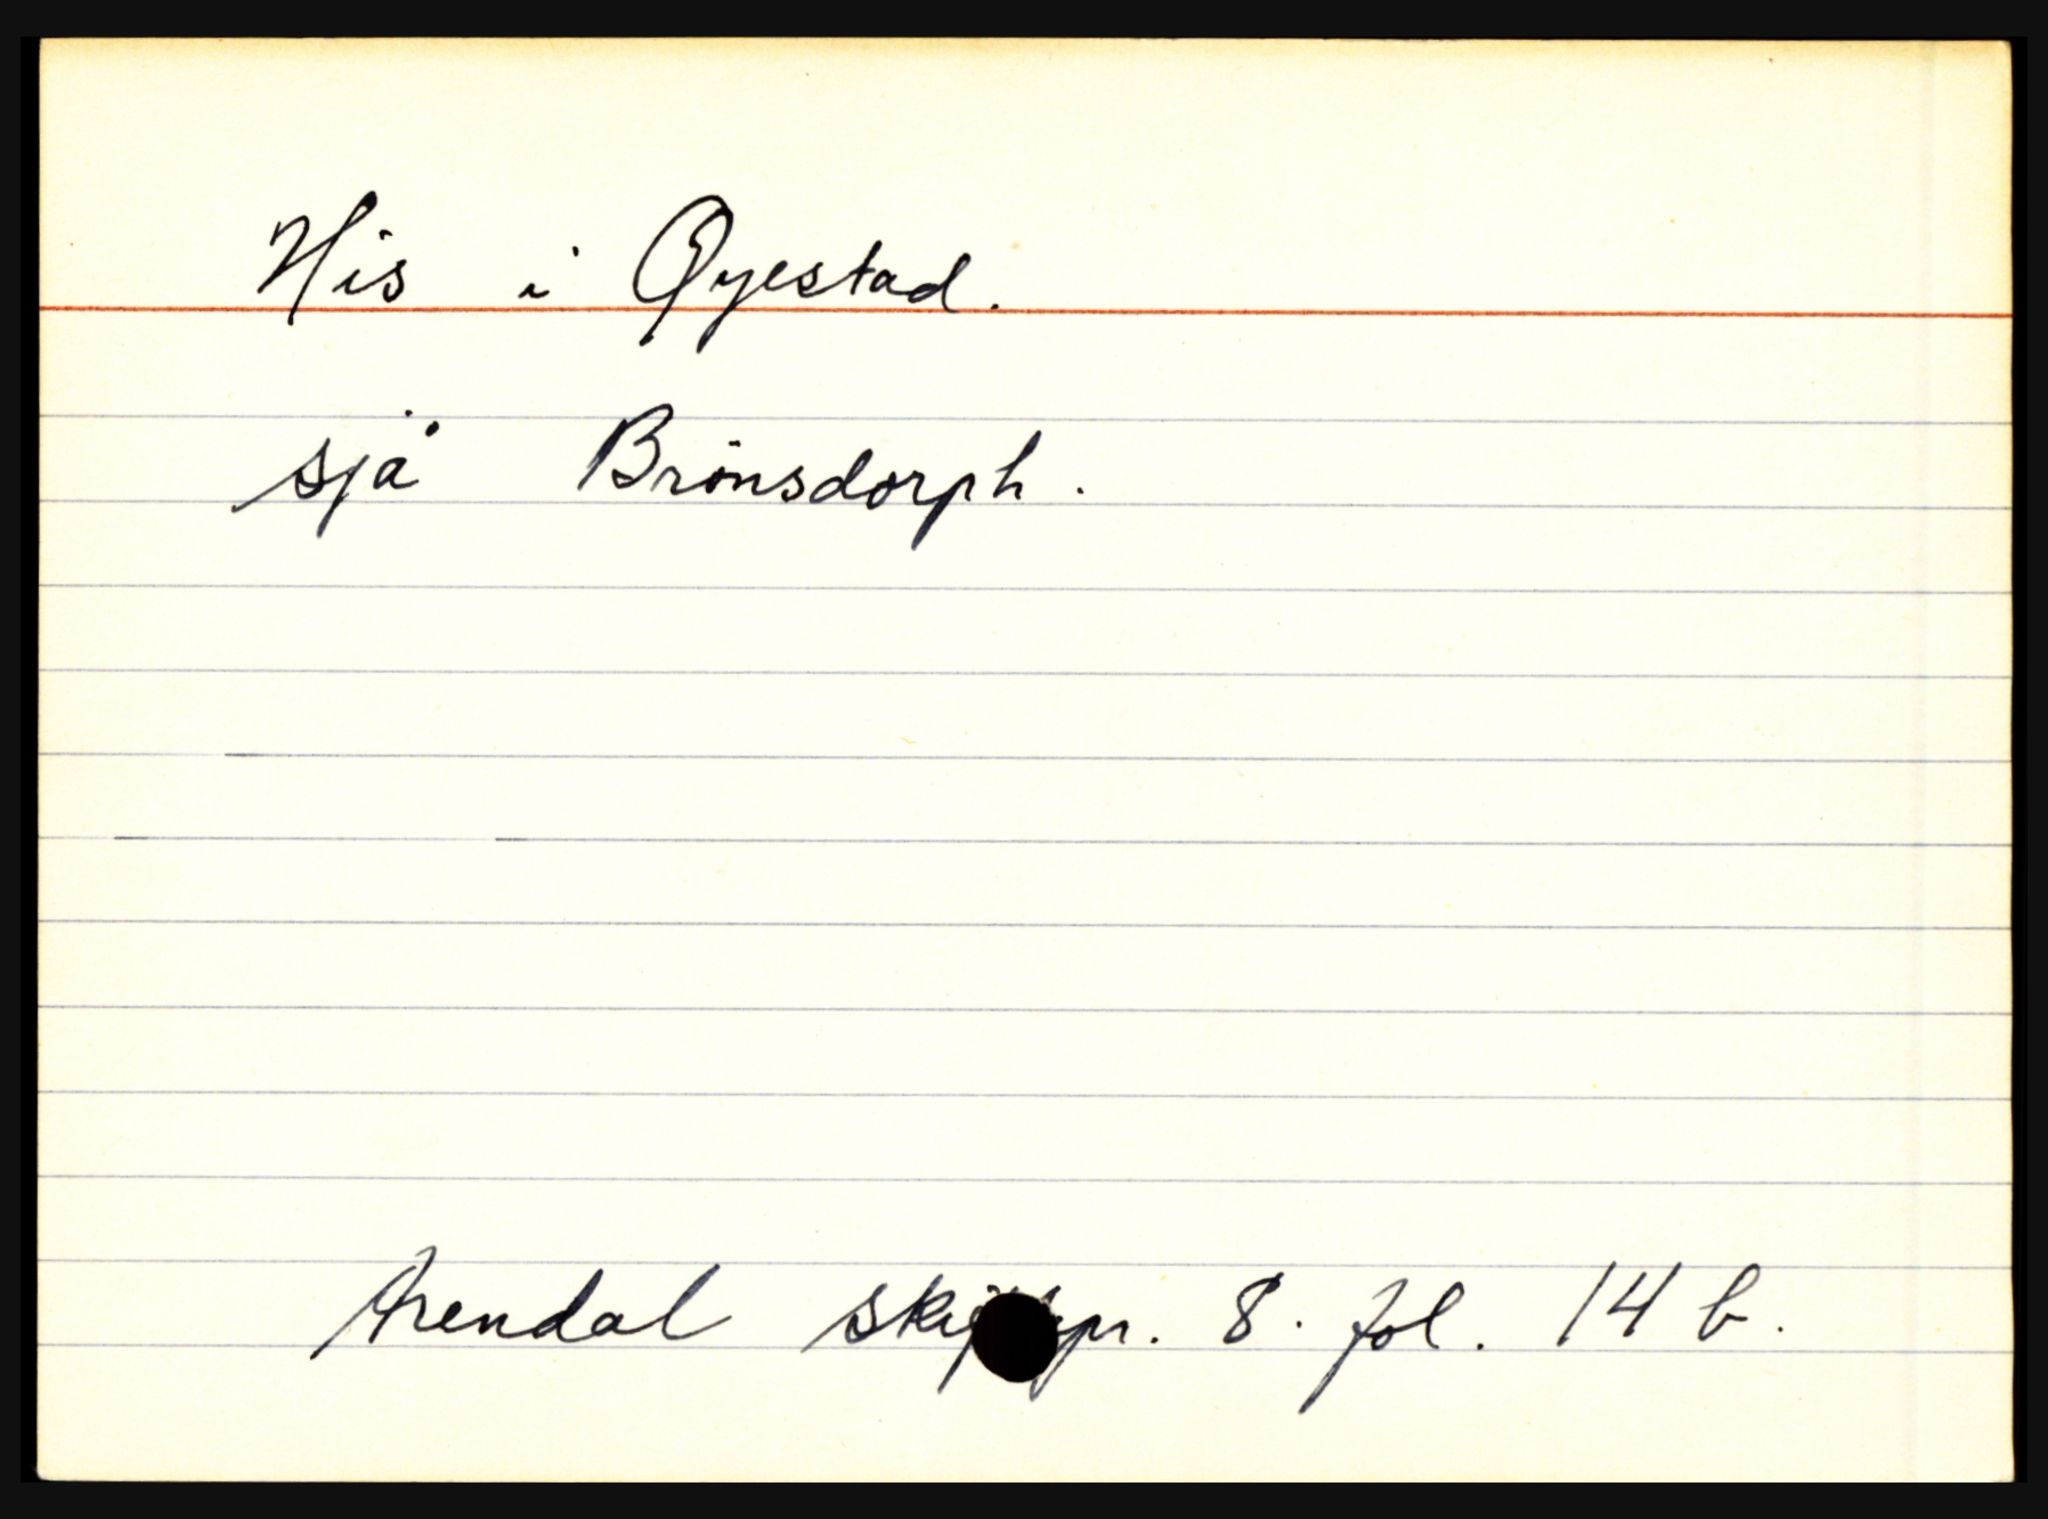 His i Øyestad.
sjå Brönsdorph.
Arendal pr. 8. fol. 14 b.